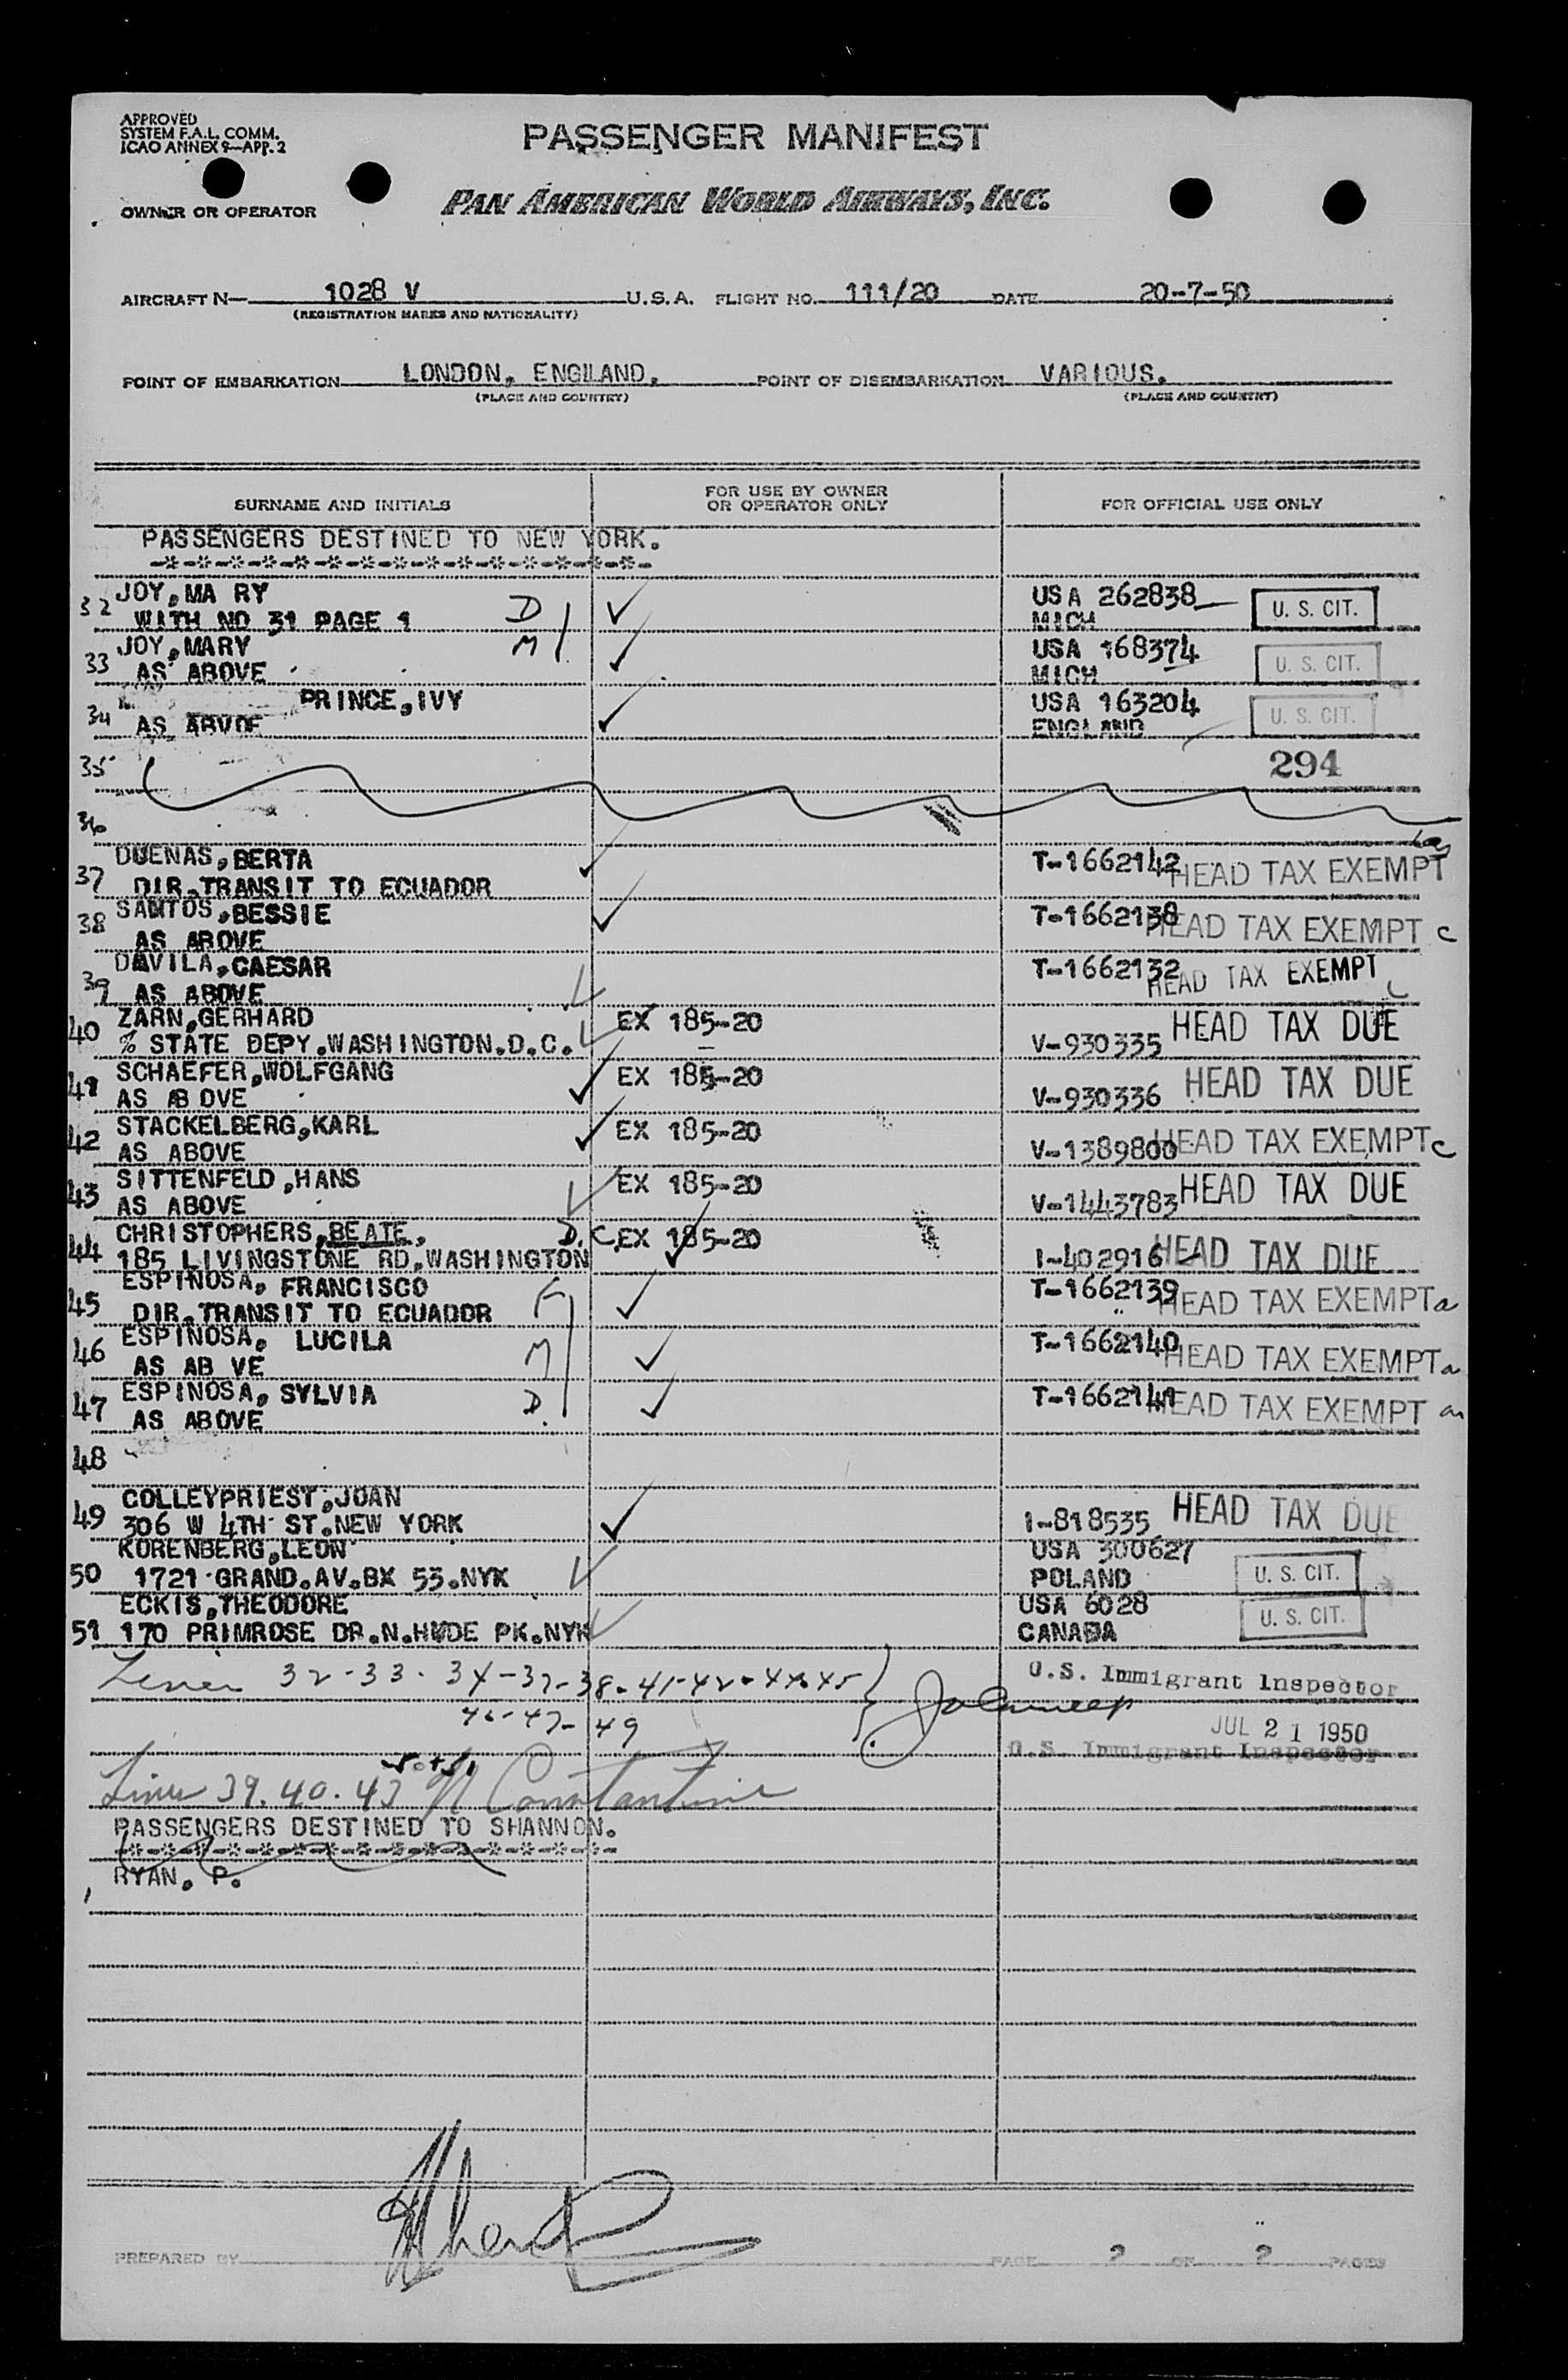 APPROVED
SYSTEM F.A.L. COMM.
ICAO ANNEX 9—APP. 2
PASSENGER MANIFEST
OWNER OR OPERATOR
PAN AMERICAN WORLD AIRWAYS, INC.
AIRCRAFT N— 1028 V U.S.A. FLIGHT NO. 111/20 DATE 20-7-50
(REGISTRATION MARKS AND NATIONALITY)
POINT OF EMBARKATION LONDON, ENGLAND, POINT OF DISEMBARKATION VARIOUS.
(PLACE AND COUNTRY) (PLACE AND COUNTRY)
SURNAME AND INITIALS FOR USE BY OWNER OR OPERATOR ONLY FOR OFFICIAL USE ONLY
PASSENGERS DESTINED TO NEW YORK.
-*-*-*-*-*-*-*-*-*-*-*-*-*-*-*-
32 JOY,MA RY USA 262838
WITH NO 31 PAGE 1 D ✓ MICH U. S. CIT.
33 JOY,MARY M ✓ USA 168374
AS ABOVE MICH U. S. CIT.
34 PRINCE,IVY ✓ USA 163204
AS ABVOE ENGLAND U. S. CIT.
35 294
36
37 DUENAS,BERTA ✓ T-1662142 HEAD TAX EXEMPT
DIR.TRANSIT TO ECUADOR
38 SANTOS,BESSIE ✓ T-1662138 HEAD TAX EXEMPT c
AS ABOVE
39 DAVILA,CAESAR T-1662132 HEAD TAX EXEMPT c
AS ABOVE ✓
40 ZARN,GERHARD EX 185-20 HEAD TAX DUE
% STATE DEPY.WASHINGTON.D.C. ✓ V-930335
41 SCHAEFER,WOLFGANG ✓ EX 185-20 HEAD TAX DUE
AS AB OVE V-930336
42 STACKELBERG,KARL ✓ EX 185-20 HEAD TAX EXEMPT c
AS ABOVE V-1389800
43 SITTENFELD,HANS ✓ EX 185-20 HEAD TAX DUE
AS ABOVE V-1443783
44 CHRISTOPHERS,BEATE, D.C. EX 185-20 ✓
185 LIVINGSTONE RD,WASHINGTON I-402916 HEAD TAX DUE
45 ESPINOSA, FRANCISCO F ✓ T-1662139 HEAD TAX EXEMPT a
DIR.TRANSIT TO ECUADOR
46 ESPINOSA, LUCILA M ✓ T-1662140 HEAD TAX EXEMPT a
AS AB VE
47 ESPINOSA, SYLVIA D. ✓ T-1662141 HEAD TAX EXEMPT
AS ABOVE
48
49 COLLEYPRIEST,JOAN ✓ HEAD TAX DUE
306 W 4TH ST.NEW YORK I-818535
50 KORENBERG,LEON ✓ USA 300627
1721 GRAND.AV.BX 53.NYK POLAND U. S. CIT.
51 ECKIS,THEODORE USA 6028
170 PRIMROSE DR.N.HYDE PK.NYK ✓ CANADA U. S. CIT.
32-33-34-37-38-41-42-44-45 U.S. Immigrant Inspector
46-47-49 JUL 21 1950
U.S. Immigrant Inspector
Lines 39.40.43 Constantine
PASSENGERS DESTINED TO SHANNON.
-*-*-*-*-*-*-*-*-*-*-*-*-*-*-
RYAN, P.
PREPARED BY PAGE 2 OF 2 PAGES